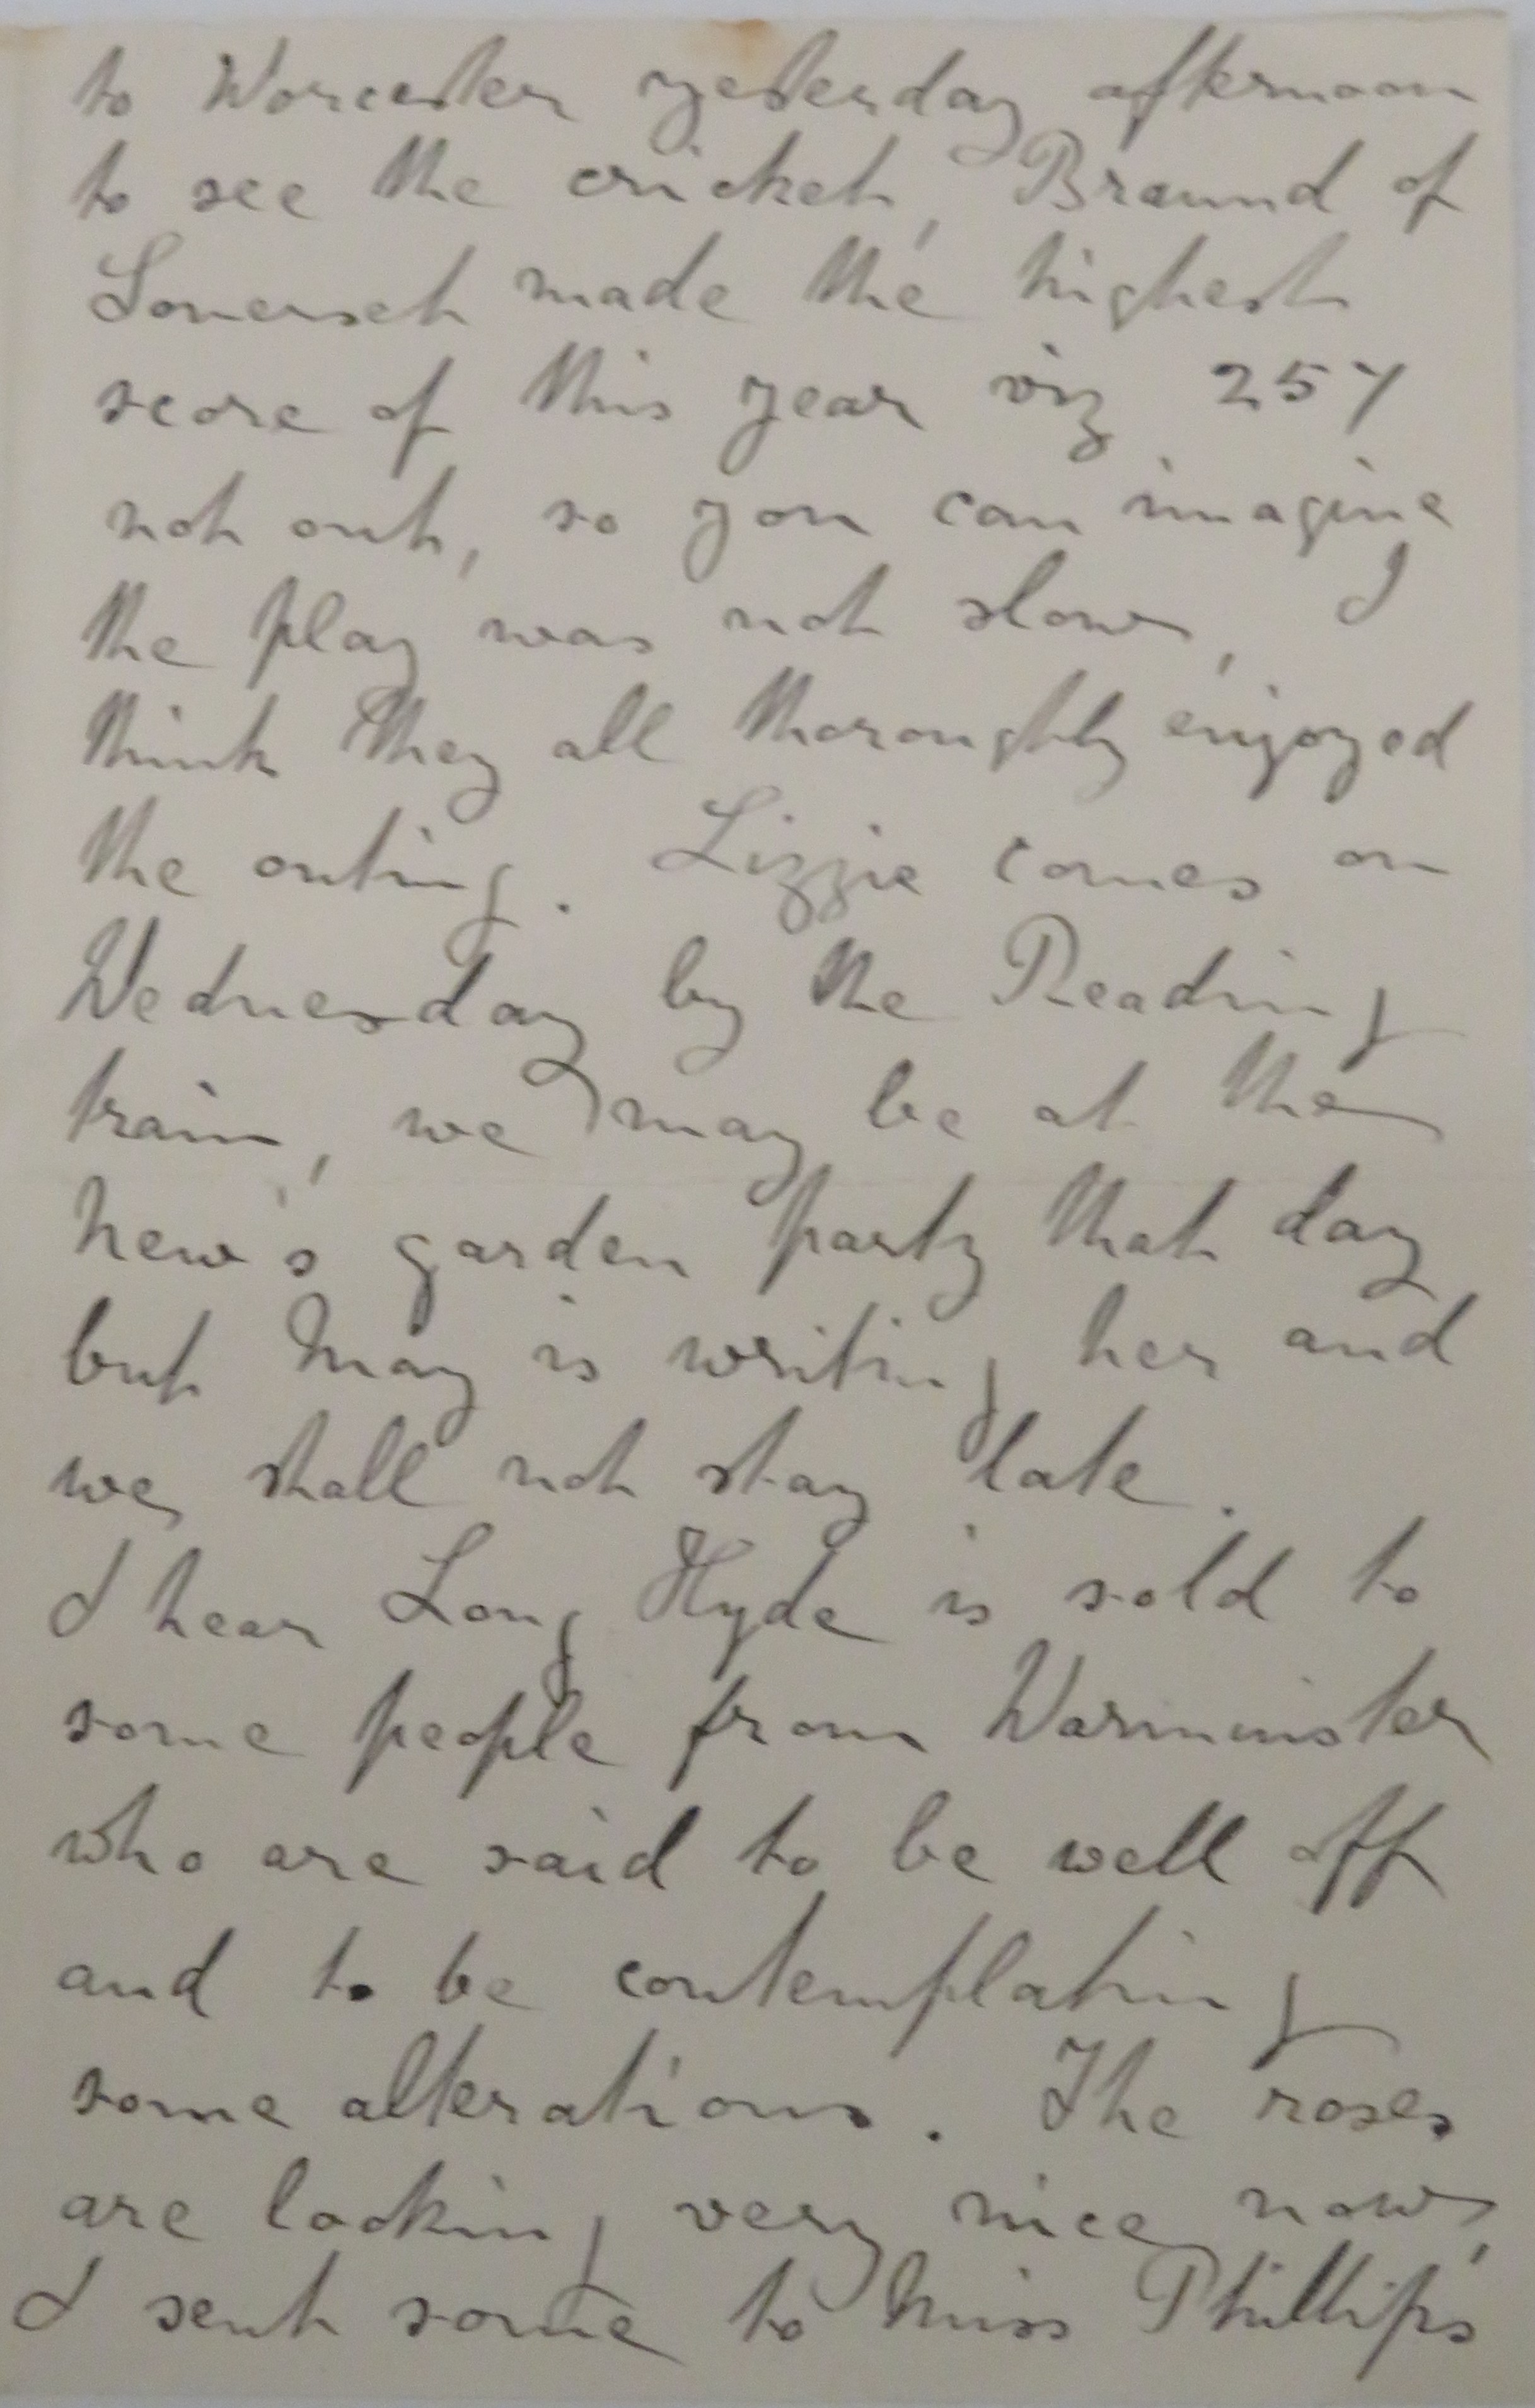 to Worcester yesterday afternoon
to see the cricket, Braund of
Somerset made the highest
score of this year viz 257
not out, so you can imagine
the play was not slow, I
think they all thoroughly enjoyed
the outing. Lizzie comes on
Wednesday by the Reading
train, we may be at the
New's garden party that day
but May is writing her and
we shall not stay late.
I hear Long Hyde is sold to
some people from Warminster
who are said to be well off
and to be contemplating
some alterations. The roses
are looking very nice now,
I sent some to Miss Phillips